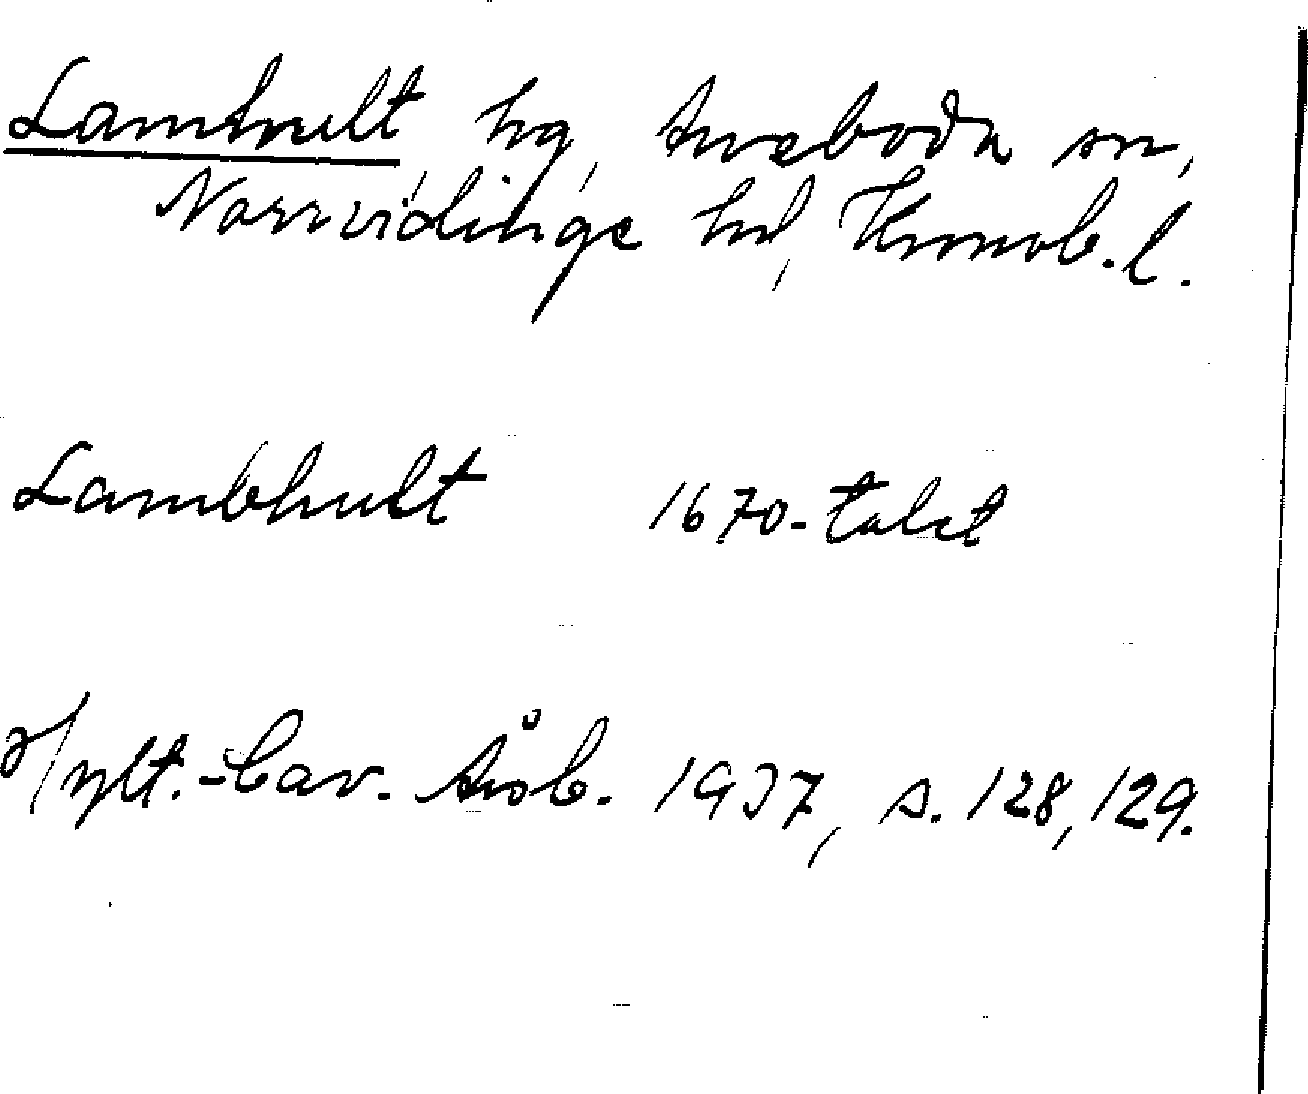 Lamhult, hg, Aneboda sn,
Norrvidinge hd, Kronob. l.
Lambhult 1670-talet
Hylt.-Cav. Årsb. 1937, s. 128, 129.